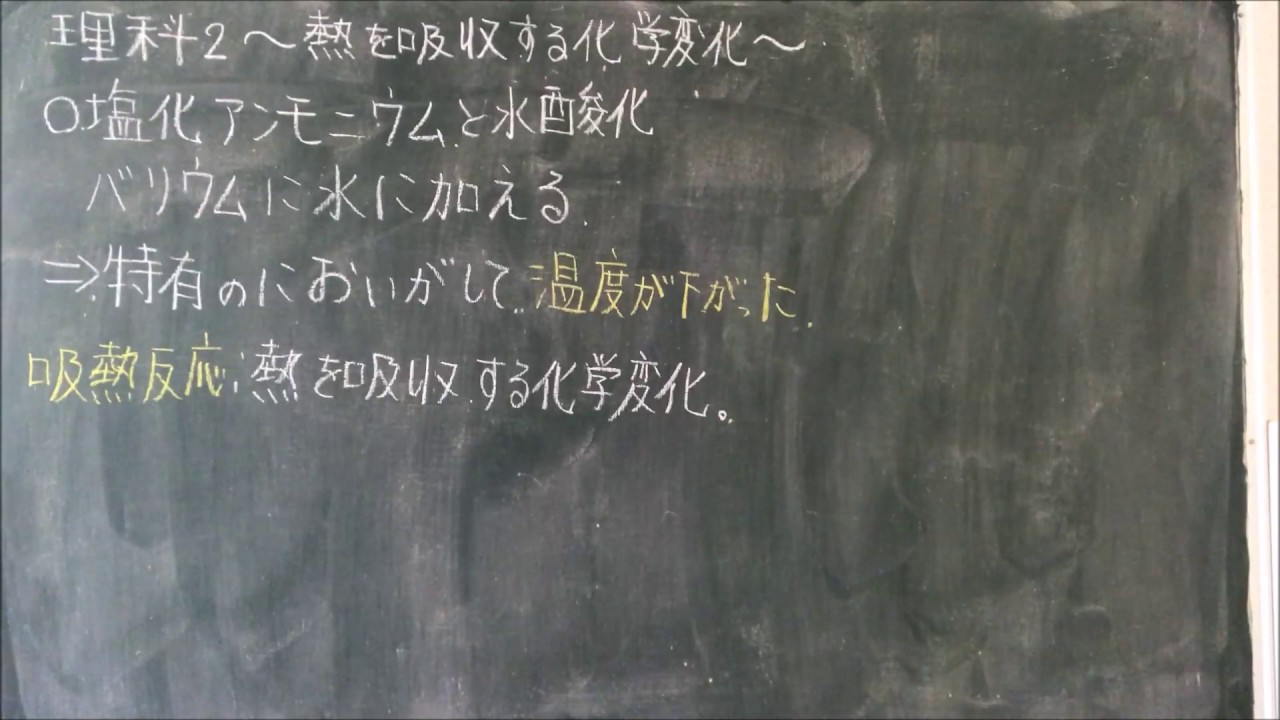 理科2〜熱を吸収する化学変化〜
○塩化アンモニウムと水酸化
バリウムに水に加える.
⇒特有のにおいがして温度が下がった.
吸熱反応:熱を吸収する化学変化。